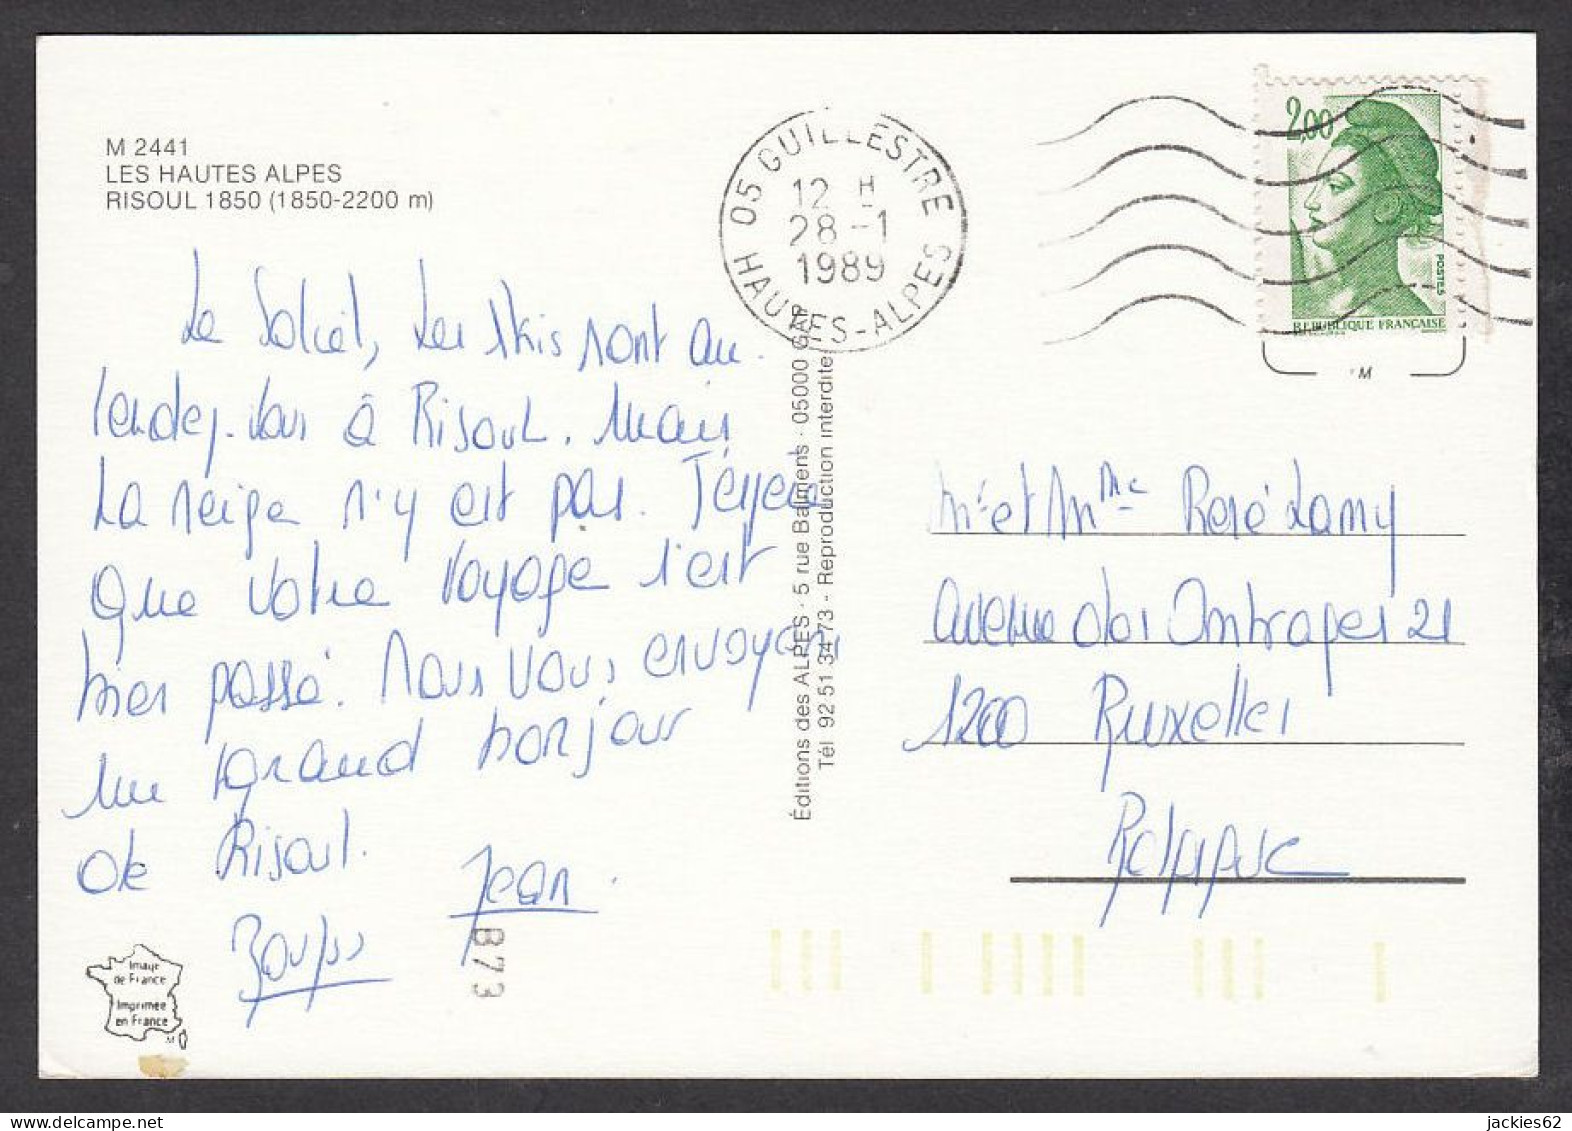 M 2441
LES HAUTES ALPES
RISOUL 1850 (1850-2200 m)
05 GUILLESTRE
12 H
28-1
1989
HAUTES-ALPES
2,00
POSTES
REPUBLIQUE FRANCAISE
M
Le Soleil, Les skis sont au
rendez-vous à Risoul. Mais
La neige n'y est pas. J'espère
que votre voyage s'est
bien passé. Nous vous envoyons
un grand bonjour
de Risoul.
Jean
Éditions des ALPES - 5 rue Balmens - 05000
Tél 92 51 34 73 - Reproduction interdite
Mr et Mme René Lamy
avenue des Ombrages 21
1200 Bruxelles
Belgique
Image
de France
Imprimée
en France
B73
jackies62